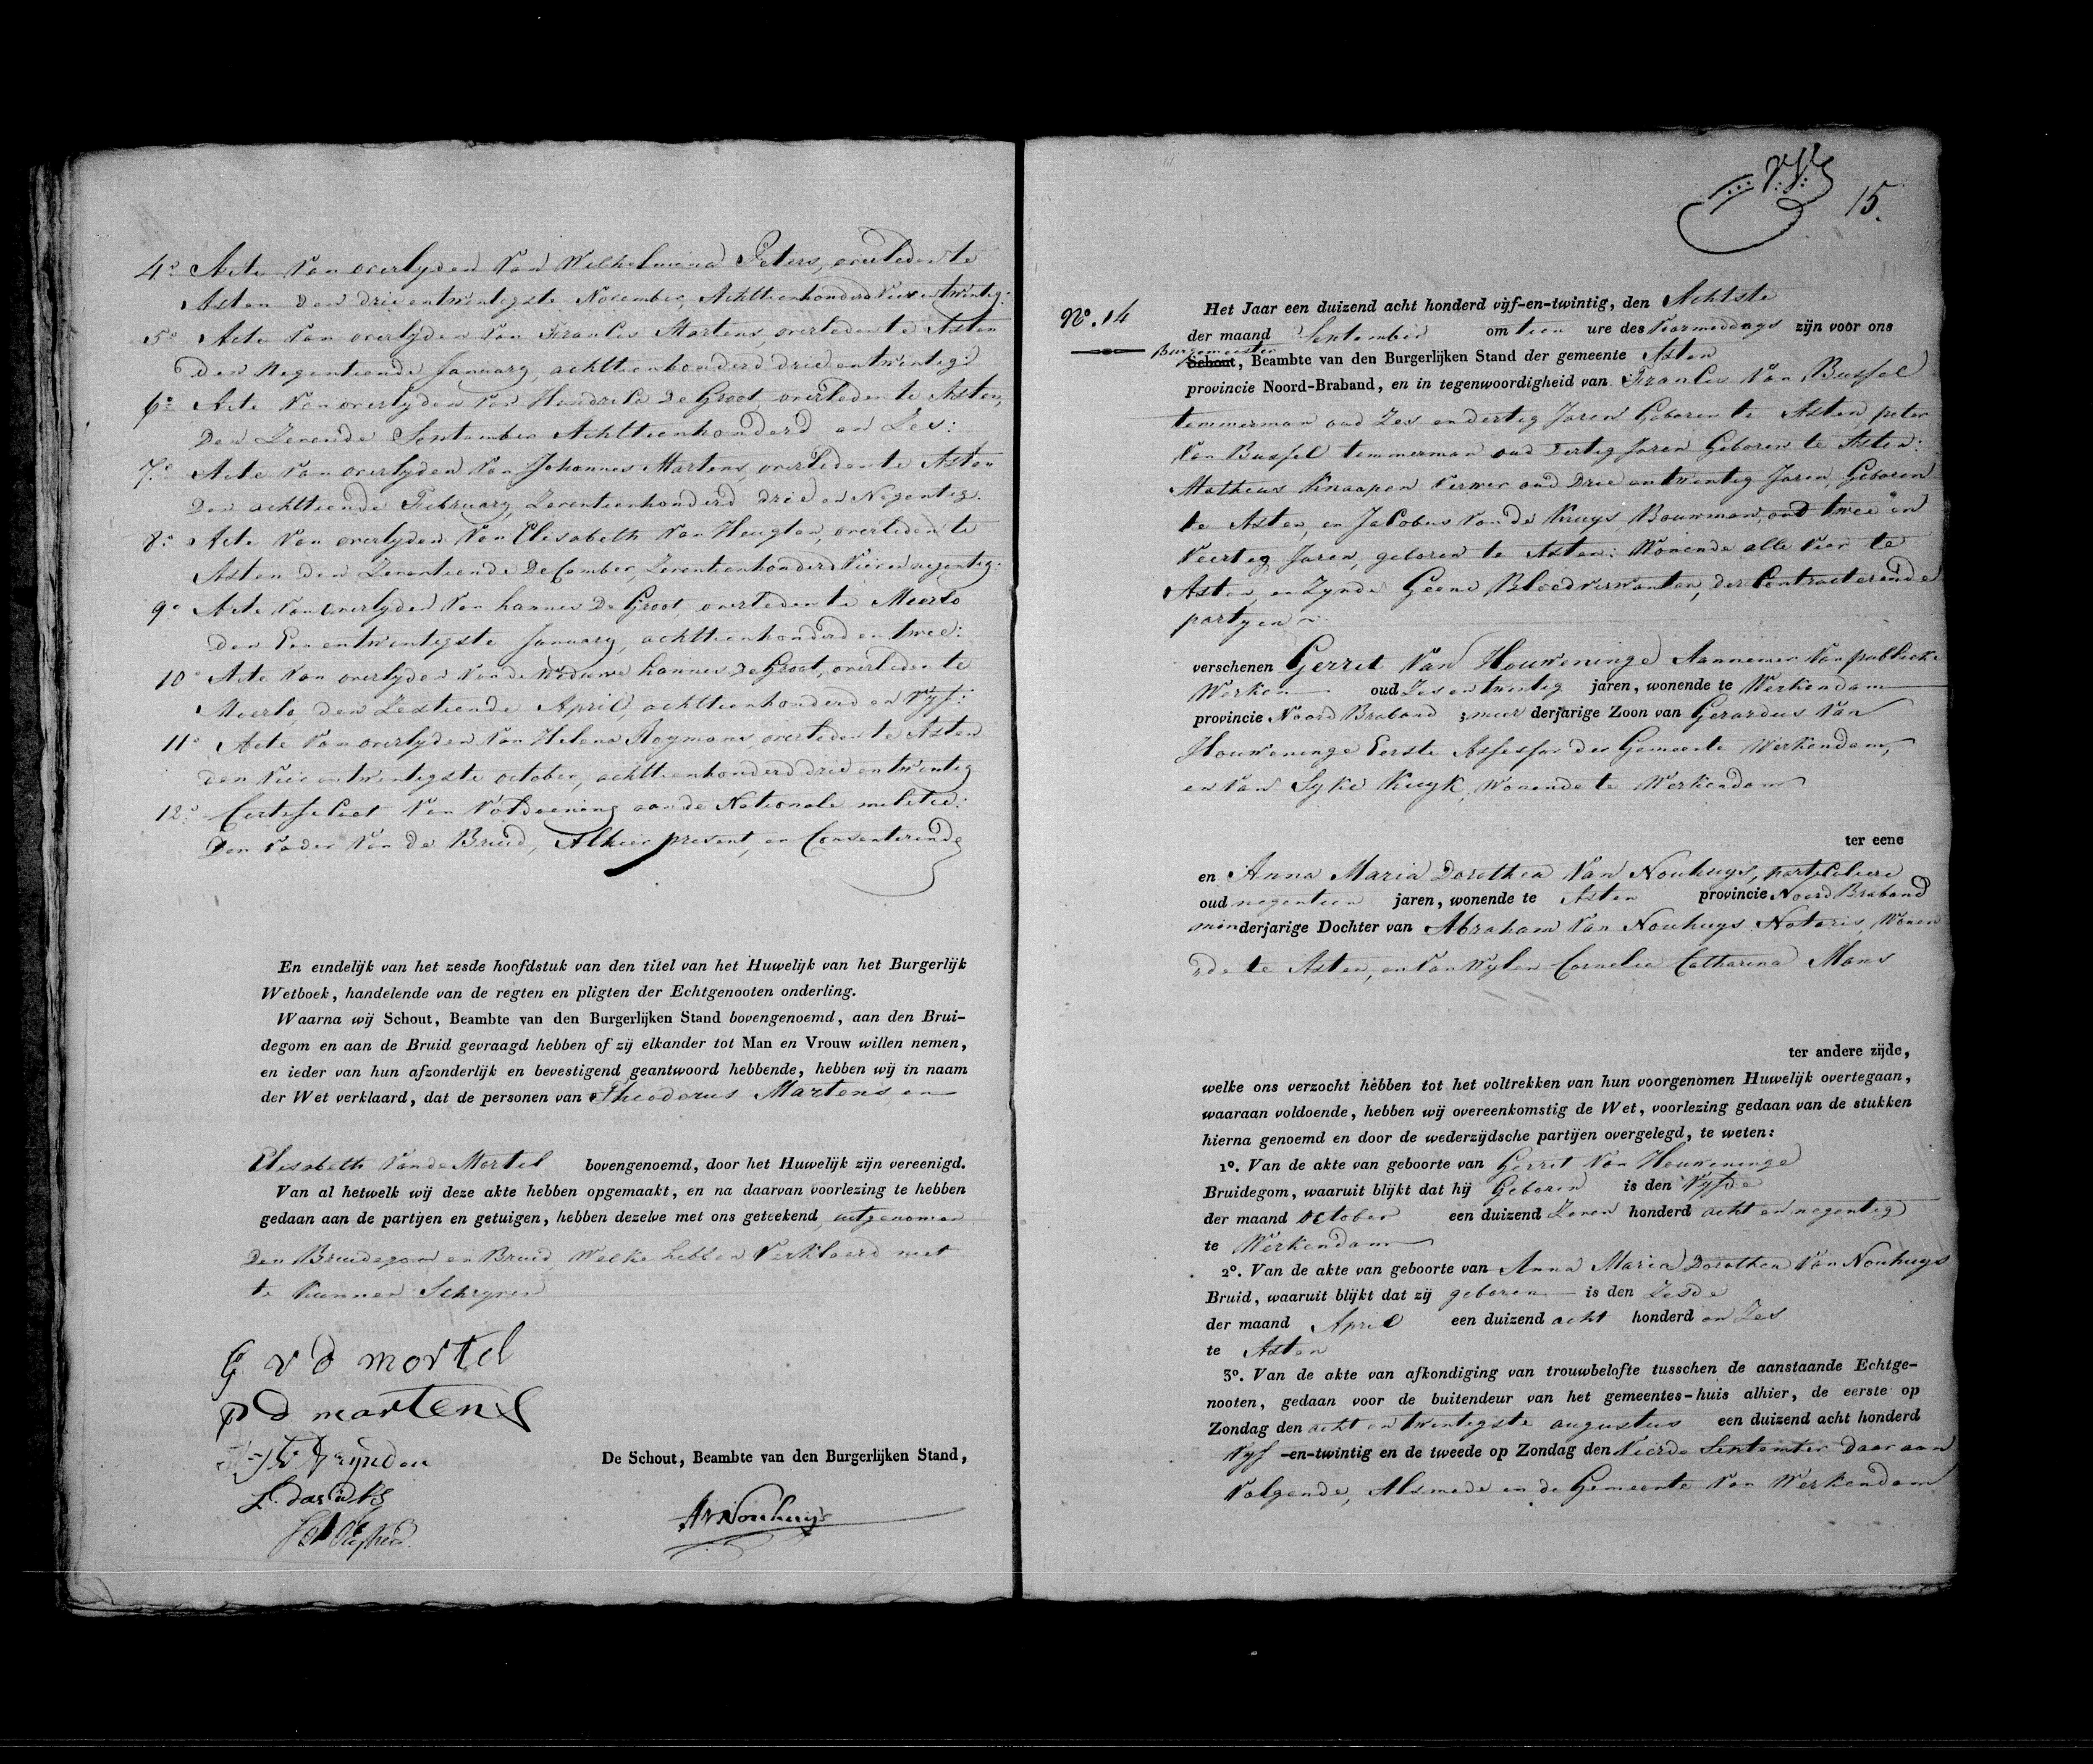 4.o Acte van overlyden van Wilhelmina Peters, overleden te
Asten den drie entwintigste November, Achttienhonderd vier entwintig:
5o Acte van overlyden van Francis Martens, overleden te Asten
den Negentiende January, achttienhonderd drie entwintig:
6o Acte van overlyden van Hendrika De Groot, overleden te Asten,
den Zevende September Achttienhonderd en Zes:
7.o Acte van overlyden van Johannes Martens, overleden te Asten
den achttiende February, Zeventienhonderd drie en Negentig.
8.o Acte van overlyden van Elisabeth van Heugten, overleden te
Asten den Zeventiende December, Zeventienhonderd vier en negentig:
9o Acte van overlyden van hannes De Groot, overleden te Meerlo
den Een entwintigste January, achttienhonderd en twee:
10o Acte van overlyden van de Weduwe hannes De Groot, overleden te
Meerlo, den Zestiende April, achttienhonderd en vyf:
11o Acte van overlyden van Helena Roymans, overleden te Asten
den vier entwintigste october, achttienhonderd drie entwintig
12.o Certificaat van voldoening aan de Nationale militie:
Den vader van de Bruid, Alhier present, en Consenterende
En eindelijk van het zesde hoofdstuk van den titel van het Huwelijk van het Burgerlijk
Wetboek, handelende van de regten en pligten der Echtgenooten onderling.
Waarna wij Schout, Beambte van den Burgerlijken Stand bovengenoemd, aan den Brui-
degom en aan de Bruid gevraagd hebben of zij elkander tot Man en Vrouw willen nemen,
en ieder van hun afzonderlijk en bevestigend geantwoord hebbende, hebben wij in naam
der Wet verklaard, dat de personen van Theodorus Martens en
Elisabeth Van de Mortel bovengenoemd, door het Huwelijk zijn vereenigd.
Van al hetwelk wij deze akte hebben opgemaakt, en na daarvan voorlezing te hebben
gedaan aan de partijen en getuigen, hebben dezelve met ons geteekend uitgenomen
Den Bruidegom en Bruid, Welke hebben verklaard niet
te kunnen Schryven
G v d mortel
P d martens
L. davids
De Schout, Beambte van den Burgerlijken Stand,
AvNouhuys
15.
No. 14
Het Jaar een duizend acht honderd vijf-en-twintig, den Achtste
der maand September om tien ure des Voormiddags zijn voor ons
Burgemeester
Schout, Beambte van den Burgerlijken Stand der gemeente Asten
provincie Noord-Braband, en in tegenwoordigheid van Francis van Bussel
temmerman oud Zes endertig Jaren Geboren te Asten, peter
van Bussel temmerman oud Dertig Jaren Geboren te Asten:
Matheus Knaapen Verwer oud Drie entwintig Jaren, Geboren
te Asten, en Jacobus van de Kruys, Bouwman, oud twee en
veertig Jaren, geboren te Asten: Wonende alle vier te
Asten, en Zynde Geene Bloedverwanten, der Contracterende
partyen
verschenen Gerret van Houweninge Aannemer van publieke
Werken oud Zes entwintig jaren, wonende te Werkendam
provincie Noord Braband ; meer derjarige Zoon van Gerardus van
Houweninge Eerste Assessor der Gemeente Werkendam,
en van Syke Kuyk, Wonende te Werkendam
ter eene
en Anna Maria Dorothea van Nouhuys, particuliere
oud negentien jaren, wonende te Asten provincie Noord Braband
minderjarige Dochter van Abraham van Nouhuys Notaris, Wonen
de te Asten, en van Wylen Cornelia Catharina Maas
ter andere zijde,
welke ons verzocht hebben tot het voltrekken van hun voorgenomen Huwelijk overtegaan,
waaraan voldoende, hebben wij overeenkomstig de Wet, voorlezing gedaan van de stukken
hierna genoemd en door de wederzijdsche partijen overgelegd, te weten:
1o. Van de akte van geboorte van Gerrit van Houweninge
Bruidegom, waaruit blijkt dat hij Geboren is den Vyfde
der maand October een duizend Zeven honderd acht en negentig
te Werkendam
2o. Van de akte van geboorte van Anna Maria Dorothea van Nouhuys
Bruid, waaruit blijkt dat zij geboren is den Zesde
der maand April een duizend acht honderd en Zes
te Asten
3o. Van de akte van afkondiging van trouwbelofte tusschen de aanstaande Echtge-
nooten, gedaan voor de buitendeur van het gemeentes-huis alhier, de eerste op
Zondag den acht en twintigste augustus een duizend acht honderd
Vyf -en-twintig en de tweede op Zondag den Vierde September daar aan
volgende, Alsmede in de Gemeente van Werkendam